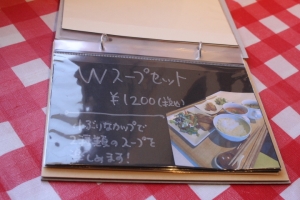 Wスープセット
¥1200(税込)
小ぶりなカップで
2種類のスープを
楽しめます!